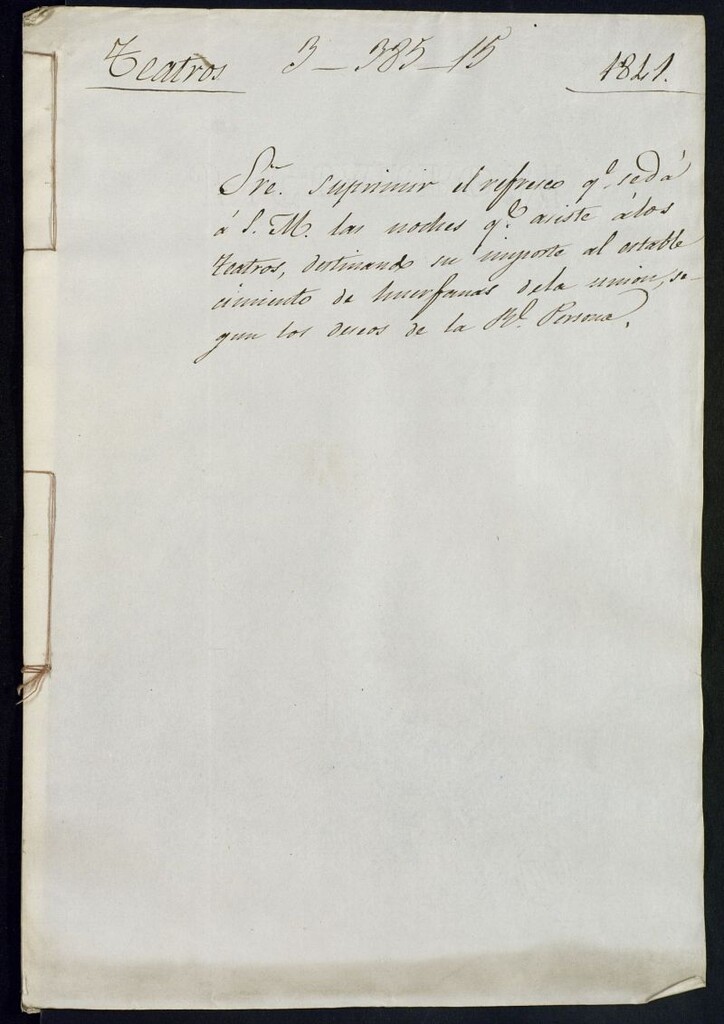 Teatros 3 - 385 - 15 1821.
Sre. suprimir el refresco q.e se dá
á S. M. las noches q.e asiste álos
teatros, destinando su importe al estable
cimiento de huerfanas dela union, se-
gun los deseos de la Rl. Persona.